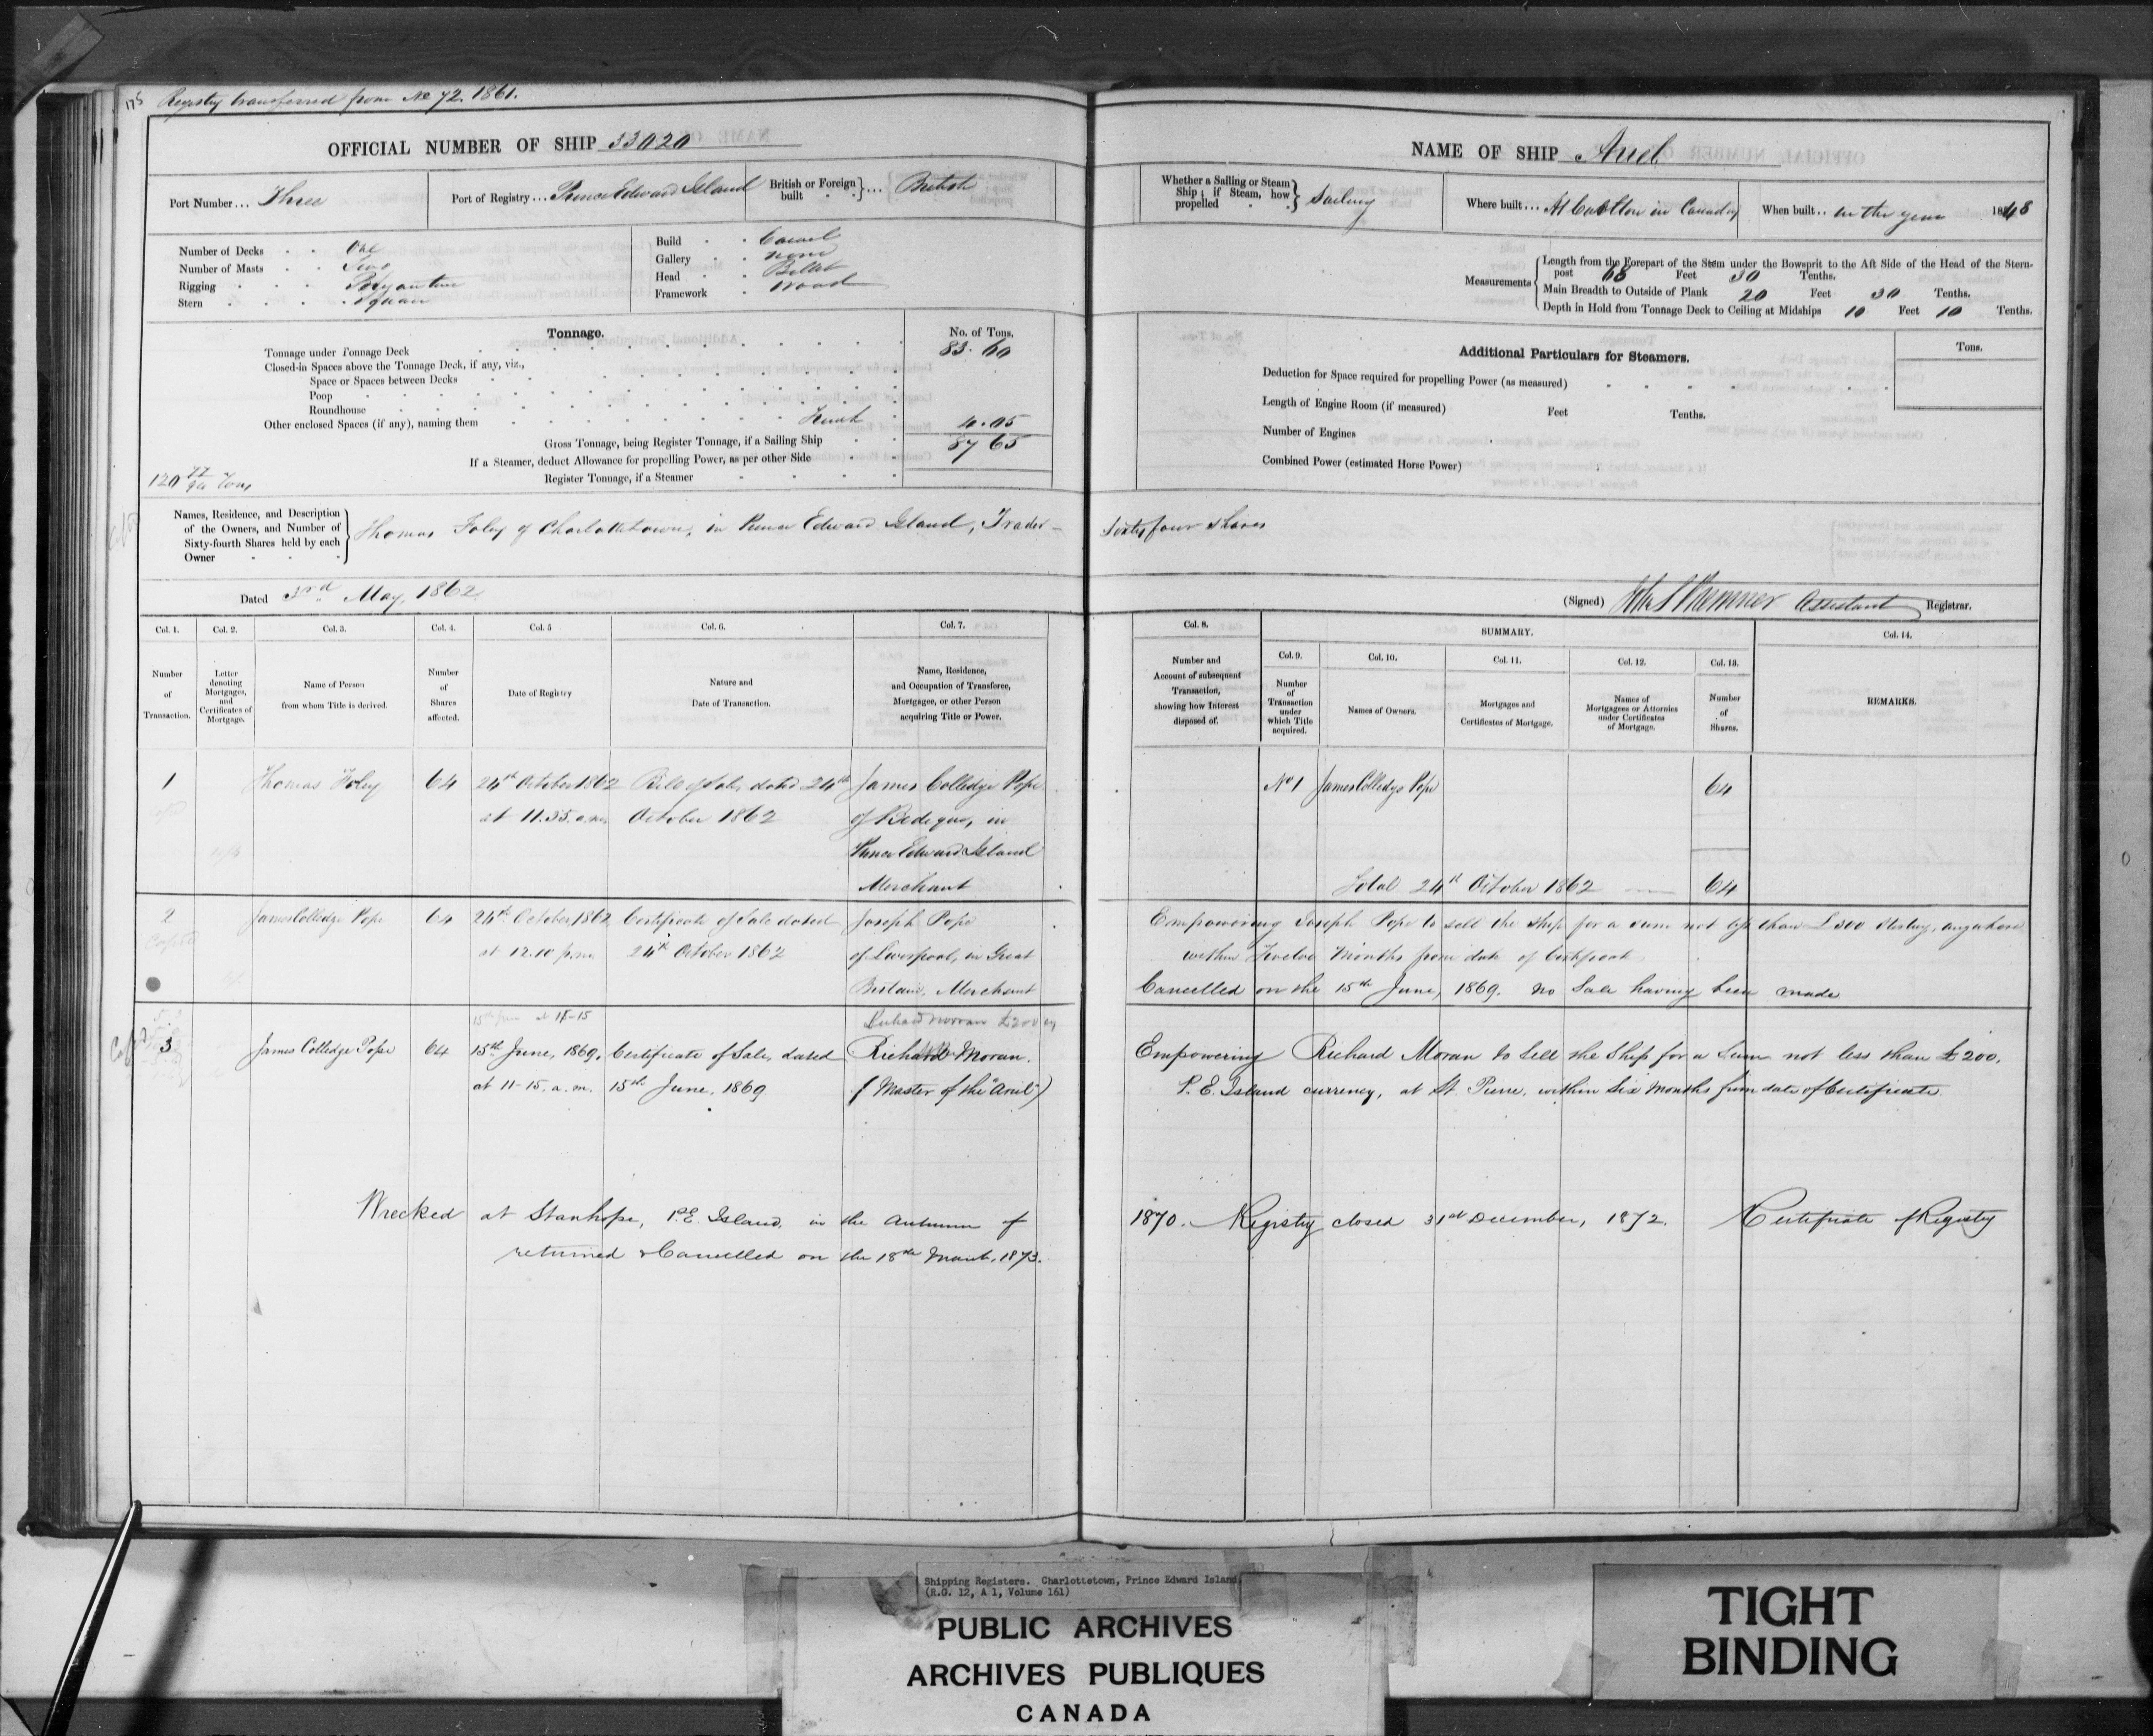 Registry transferred from No 72. 1861.
OFFICIAL NUMBER OF SHIP 33020
Port Number... Three
Port of Registry... Prince Edward Island
British or Foreign built } ... British
Number of Decks One
Number of Masts Two
Rigging
Stern Square
Build Carvel
Gallery none
Head Billet
Framework Wood
Tonnage.
No. of Tons.
Tonnage under Tonnage Deck 83.60
Closed-in Spaces above the Tonnage Deck, if any, viz.,
Space or Spaces between Decks
Poop
Roundhouse
Other enclosed Spaces (if any), naming them 4.05
Gross Tonnage, being Register Tonnage, if a Sailing Ship 87 65
If a Steamer, deduct Allowance for propelling Power, as per other Side
Register Tonnage, if a Steamer
Names, Residence, and Description of the Owners, and Number of Sixty-fourth Shares held by each Owner
Thomas Foley of Charlottetown, in Prince Edward Island, Trader
Dated 3rd May, 1862
Col. 1. Col. 2. Col. 3. Col. 4. Col. 5 Col. 6. Col. 7.
Number of Transaction.
Letter denoting Mortgages, and Certificates of Mortgage.
Name of Person from whom Title is derived.
Number of Shares affected.
Date of Registry
Nature and Date of Transaction.
Name, Residence, and Occupation of Transferee, Mortgagee, or other Person acquiring Title or Power.
1 Thomas Foley 64 24th October 1862 Bill of Sale, dated 24th James Colledge Pope
at 11.35 a.m. October 1862 of Bedeque, in
Prince Edward Island
Merchant
2 James Colledge Pope 64 24th October 1862 Certificate of Sale dated Joseph Pope
at 12.10 p.m. 24th October 1862 of Liverpool, in Great
Britain, Merchant
Richard Moran £200
3 James Colledge Pope 64 15th June, 1869, Certificate of Sale, dated Richard Moran.
at 11-15. a.m. 15th June, 1869 (Master of the "Ariel")
Wrecked at Stanhope, P.E. Island, in the Autumn of
returned & Cancelled on the 18th March, 1873.
NAME OF SHIP Ariel
Whether a Sailing or Steam Ship; if Steam, how propelled } Sailing
Where built... At in Canada
When built.. in the year 1848
Measurements
Length from the Forepart of the Stem under the Bowsprit to the Aft Side of the Head of the Stern-
post 68 Feet 30 Tenths.
Main Breadth to Outside of Plank 20 Feet 30 Tenths.
Depth in Hold from Tonnage Deck to Ceiling at Midships 10 Feet 10 Tenths.
Additional Particulars for Steamers.
Tons.
Deduction for Space required for propelling Power (as measured)
Length of Engine Room (if measured) Feet Tenths.
Number of Engines
Combined Power (estimated Horse Power)
Sixty four shares
(Signed) Assistant Registrar.
Col. 8. SUMMARY. Col. 14.
Col. 9. Col. 10. Col. 11. Col. 12. Col. 13.
Number and Account of subsequent Transaction, showing how Interest disposed of.
Number of Transaction under which Title acquired.
Names of Owners.
Mortgages and Certificates of Mortgage.
Names of Mortgagees or Attornies under Certificates of Mortgage.
Number of Shares.
REMARKS.
No 1 James Colledge Pope 64
Total 24th October 1862 64
Empowering Joseph Pope to sell the Ship for a sum not less than £300 Sterling, anywhere
within Twelve Months from date of Certificate
Cancelled on the 15th June, 1869. No Sale having been made
Empowering Richard Moran to Sell the Ship for a Sum not less than £200.
P.E. Island currency, at St. Pierre, within Six Months from date of Certificate.
1870. Registry closed 31st December, 1872. Certificate of Registry
Shipping Registers. Charlottetown, Prince Edward Island.
(R.G. 12, A 1, Volume 161)
PUBLIC ARCHIVES
ARCHIVES PUBLIQUES
CANADA
TIGHT
BINDING